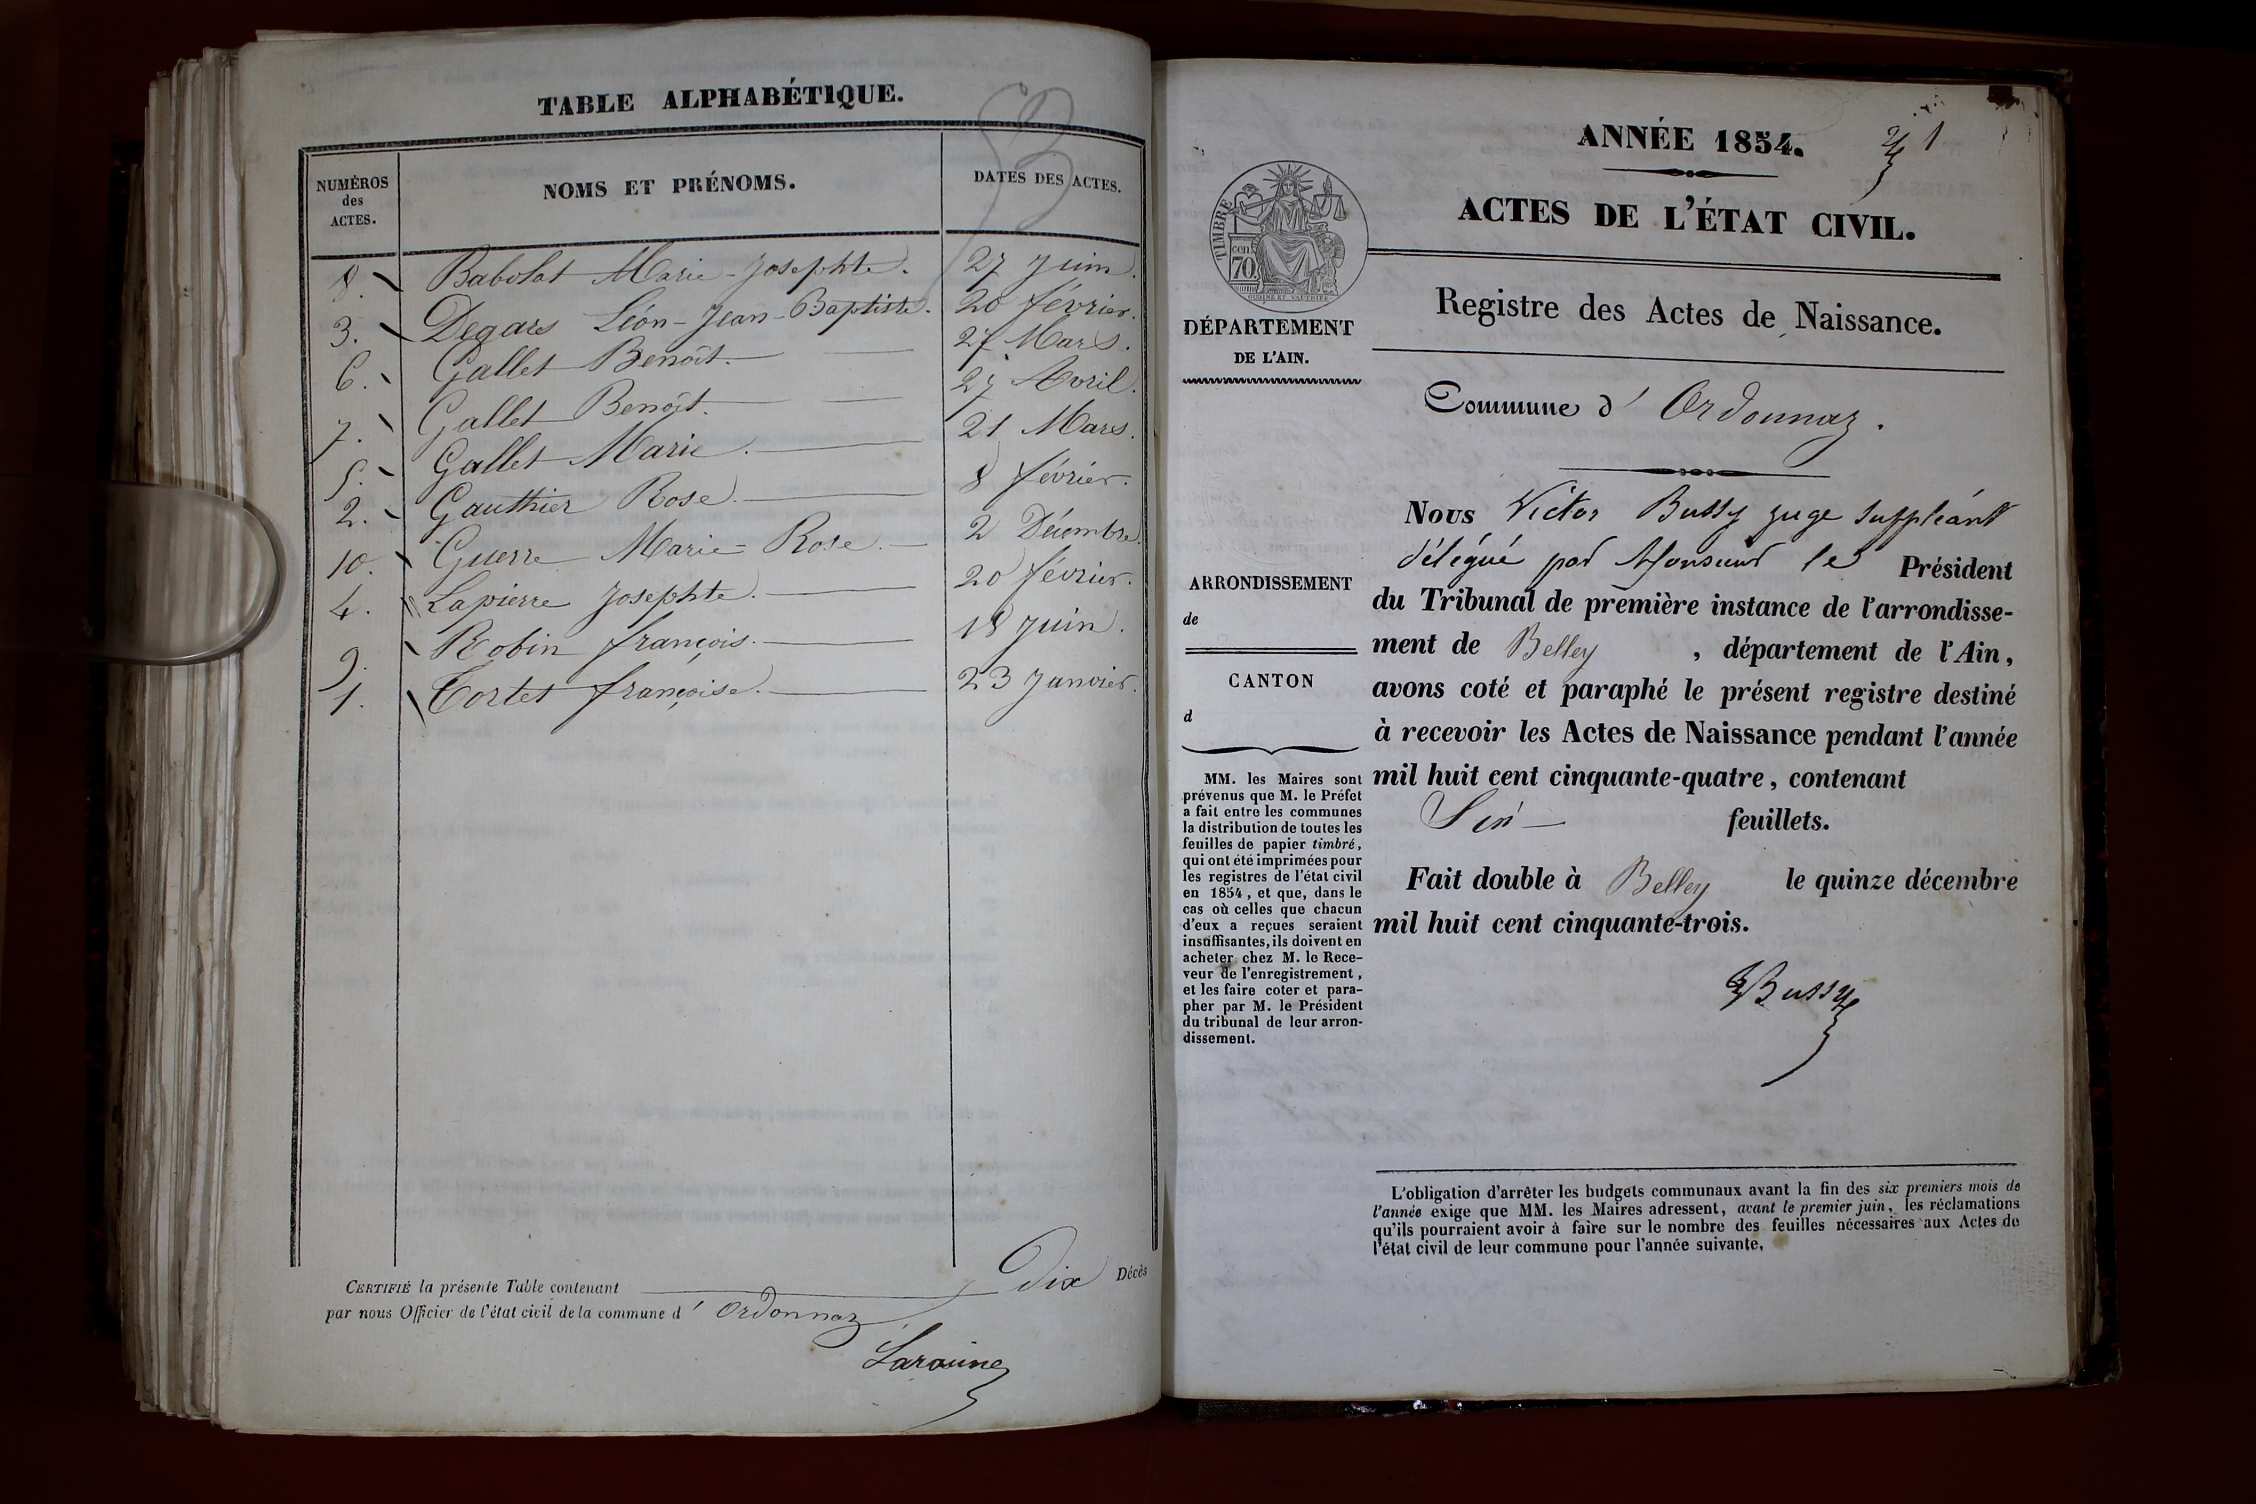 TABLE ALPHABÉTIQUE.
53
NUMÉROS
des
ACTES.
NOMS ET PRÉNOMS.
DATES DES ACTES.
8. Babolat Marie-Josephte. 27 Juin.
3. Degars Léon-Jean-Baptiste. 20 février.
6. Gallet Benoît. 27 Mars.
7. Gallet Benoît. 27 Avril.
5. Gallet Marie. 21 Mars.
2. Gauthier Rose. 8 février.
10. Guerre Marie-Rose. 2 Décembre.
4. Lapierre Josephte. 20 février.
9. Robin françois. 18 Juin.
1. Tortet françoise. 23 Janvier.
CERTIFIÉ la présente Table contenant dix Décès
par nous Officier de l'état civil de la commune d' Ordonnaz
ANNÉE 1854.
1
ACTES DE L'ÉTAT CIVIL.
TIMBRE
cen
70
DÉPARTEMENT
DE L'AIN.
Registre des Actes de Naissance.
Commune d' Ordonnaz.
Nous Victor Bussy juge suppléant
délégué par Monsieur le Président
du Tribunal de première instance de l'arrondisse-
ment de Belley, département de l'Ain,
avons coté et paraphé le présent registre destiné
à recevoir les Actes de Naissance pendant l'année
mil huit cent cinquante-quatre, contenant
Six feuillets.
Fait double à Belley le quinze décembre
mil huit cent cinquante-trois.
Bussy
ARRONDISSEMENT
de
CANTON
d
MM. les Maires sont
prévenus que M. le Préfet
a fait entre les communes
la distribution de toutes les
feuilles de papier timbré,
qui ont été imprimées pour
les registres de l'état civil
en 1854, et que, dans le
cas où celles que chacun
d'eux a reçues seraient
insuffisantes, ils doivent en
acheter chez M. le Rece-
veur de l'enregistrement,
et les faire coter et para-
pher par M. le Président
du tribunal de leur arron-
dissement.
L'obligation d'arrêter les budgets communaux avant la fin des six premiers mois de
l'année exige que MM. les Maires adressent, avant le premier juin, les réclamations
qu'ils pourraient avoir à faire sur le nombre des feuilles nécessaires aux Actes de
l'état civil de leur commune pour l'année suivante,